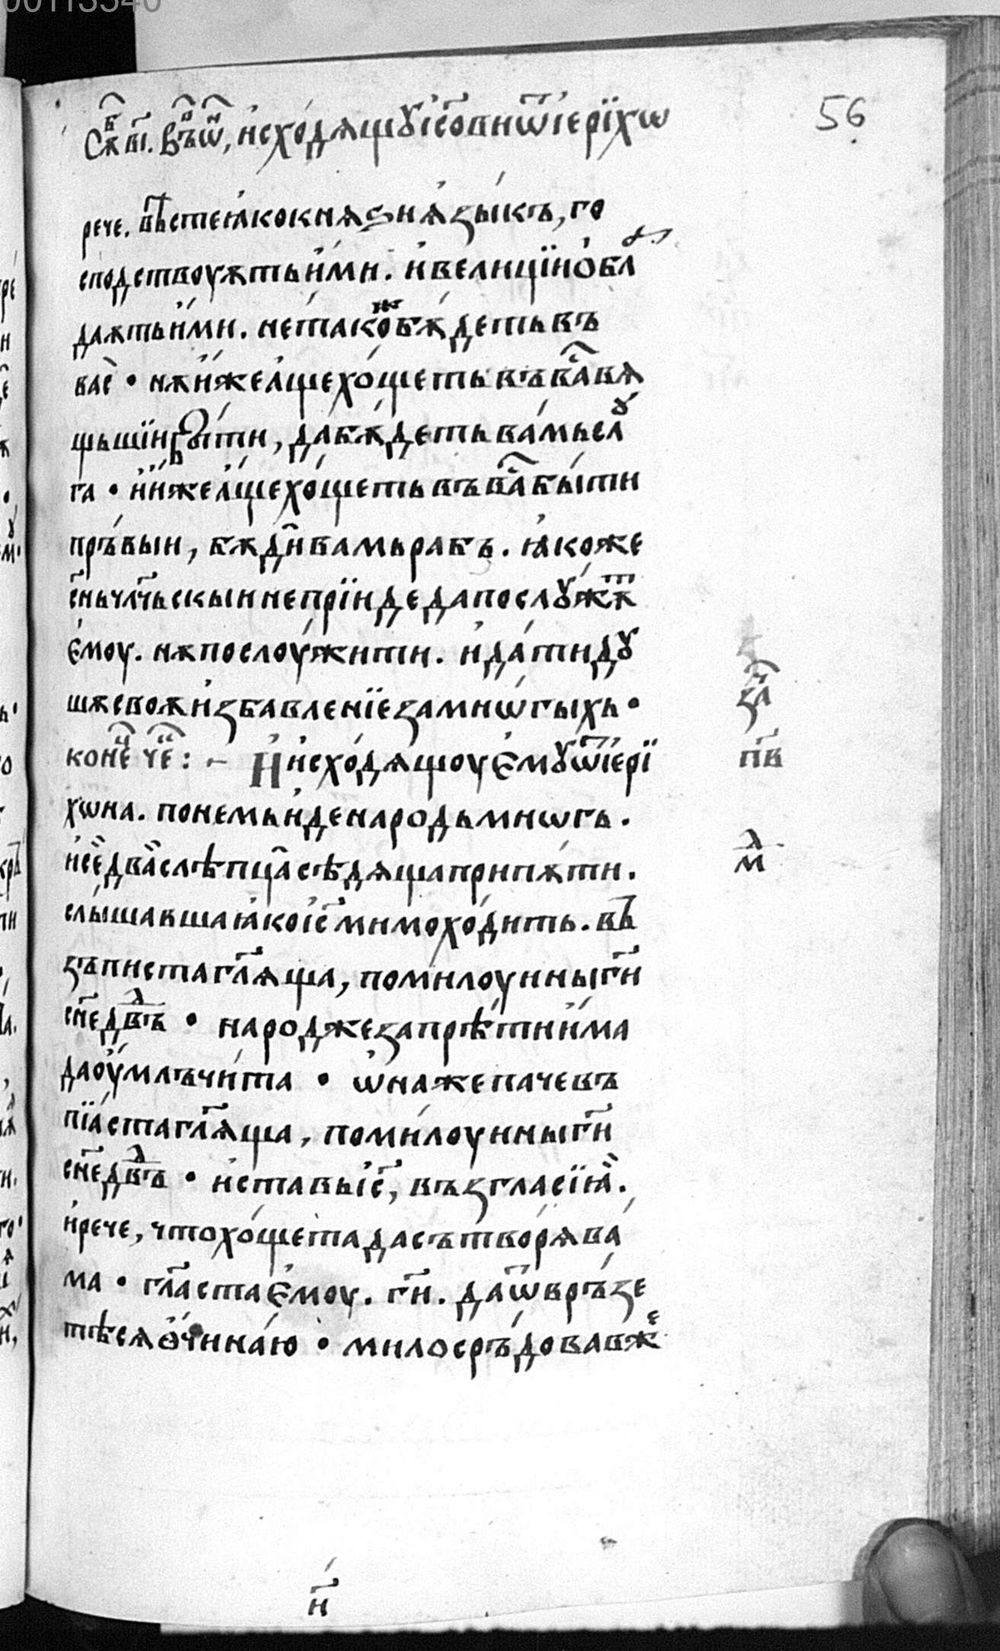 00113540
56
Сѫ҇в ві҃. Въ ѡ҇н, исходѧщꙋ і҃сови ѿ іерїхѡ
рече. вѣсте ꙗко кнѧѕи ѧзыкъ, го
сподствоуѫть ими. и велиції обла
даѫть ими. не тако ж бѫдеть въ
ва҇с • нѫ иже аще хощеть въ ва҇с вѧ
щьшїи быти, да бѫдеть вамь слꙋ
га • и иже аще хощеть въ ва҇с быти
пръвыи, бѫди вамь рабъ. ꙗкоже
с҃нь чл҃чьскыи не прїиде да послꙋжѧт
ємоу. нѫ послоужити. и дати дꙋ
шѫ своѫ избавленїе за мнѡгыхь •
коне҇ц че҇т : ~ И исходѧщоу ємꙋ ѿ іерї
зач
п҃в
хѡна. по немь иде народь мнѡгь.
и се два слѣпца сѣдѧща при пѫти.
м҇л
слышавша ꙗко і҃с мимоходить. въ
зъписта гл҃ѧща, помилоуи ны г҃и
с҃не д҃въ • народ же запрѣти има
да оумлъчита • ѡна же паче въ
пїаста гл҃ѧща, помилоуи ны г҃и
с҃не д҃въ • и ставь і҃с, възгласи ꙗ҇.
и рече, что хощета да сътворѧ ва
ма • гл҃аста ємоу. г҃и. да ѿвръзе
тѣ сѧ очи наю • милосръдовав же
н҃